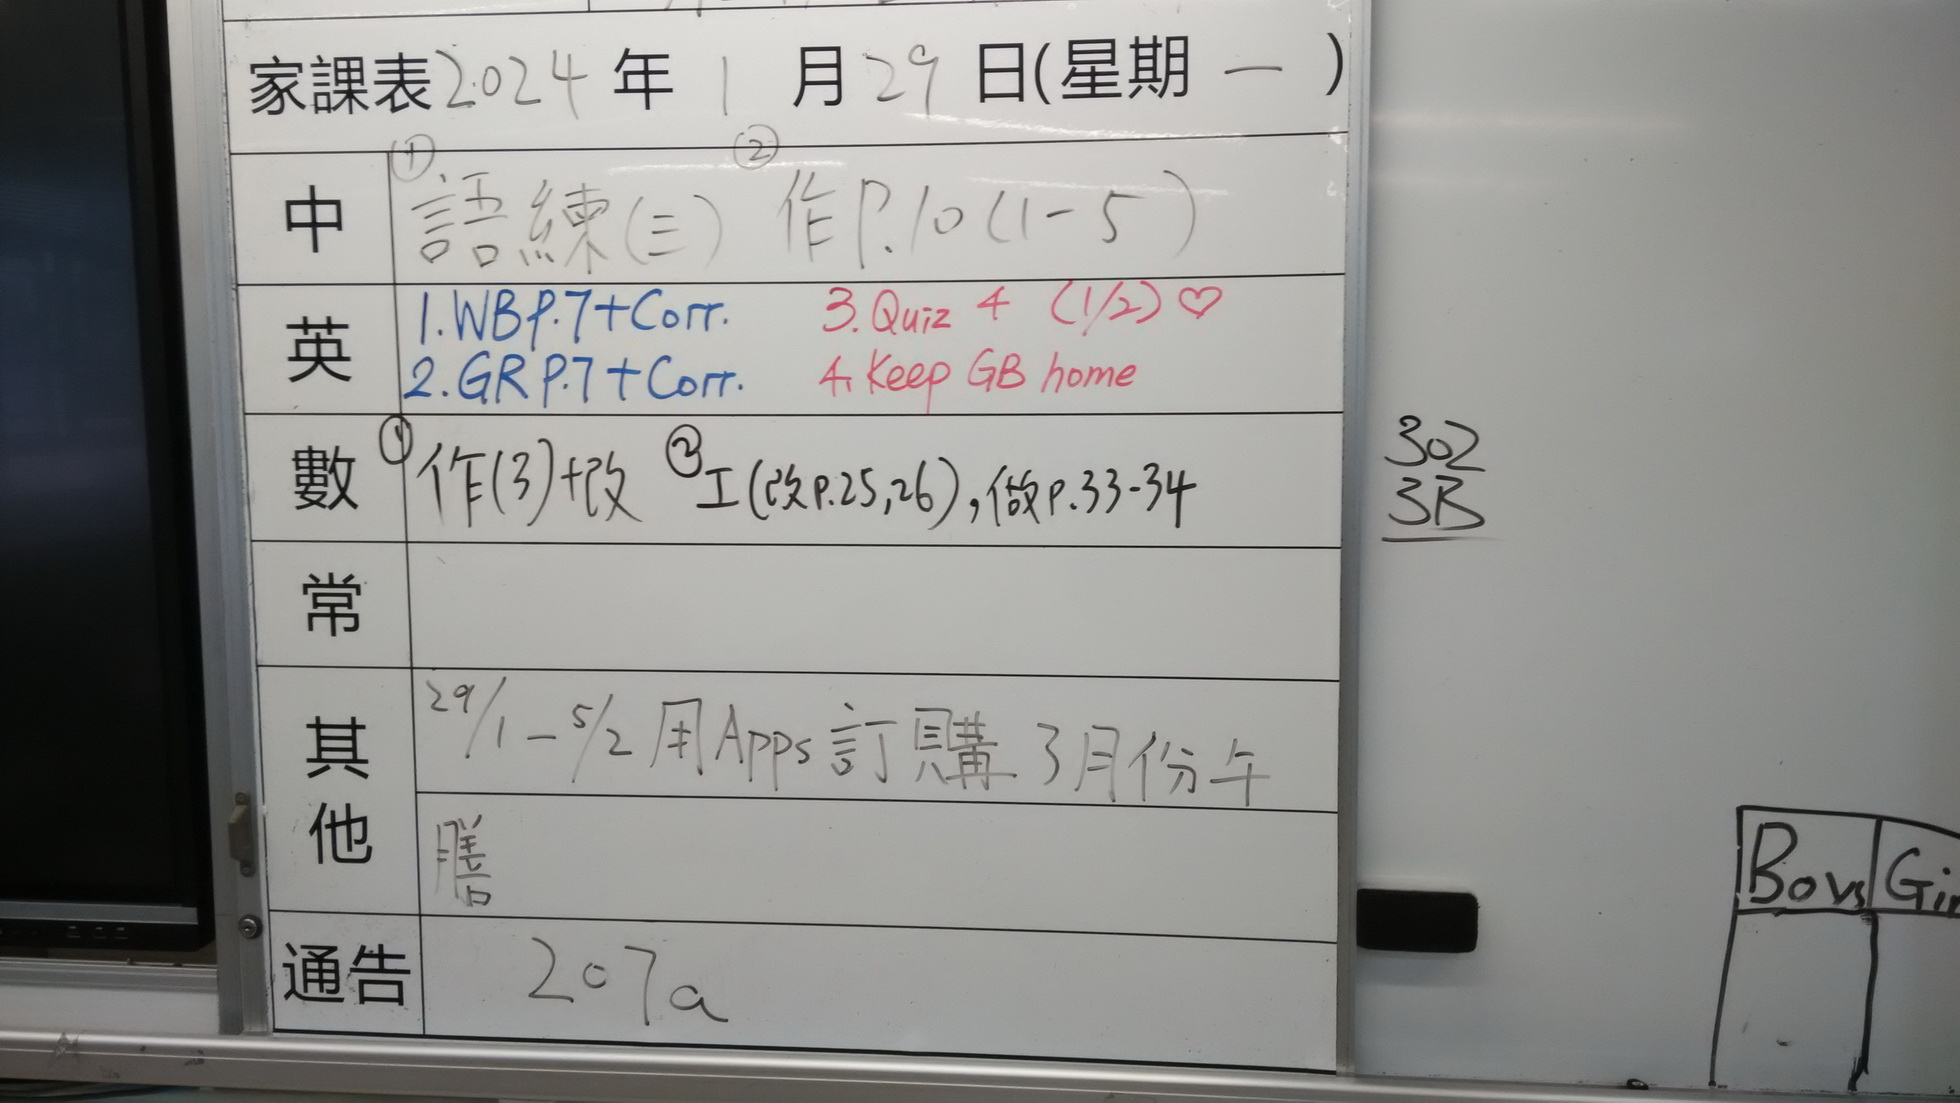 家課表2024年1月29日(星期一)
中 ①語練(三) ②作P.10(1-5)
英 1.WBP.7+Corr. 3.Quiz 4 (1/2)♡
2.GRP.7+Corr. 4.Keep GB home
數 ①作(3)+改 ②工(改P.25,26),做P.33-34
302
3B
常
其他 29/1-5/2用Apps訂購3月份午
膳
通告 207a
Boys